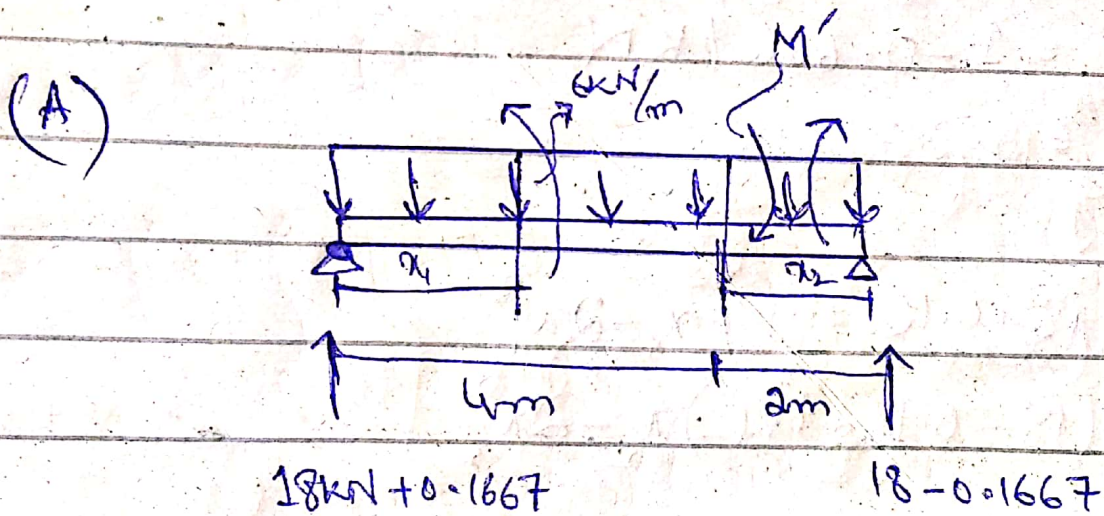 M′
(A)
6kN/m
x₁ x₂
4m 2m
18kN + 0.1667 18 - 0.1667